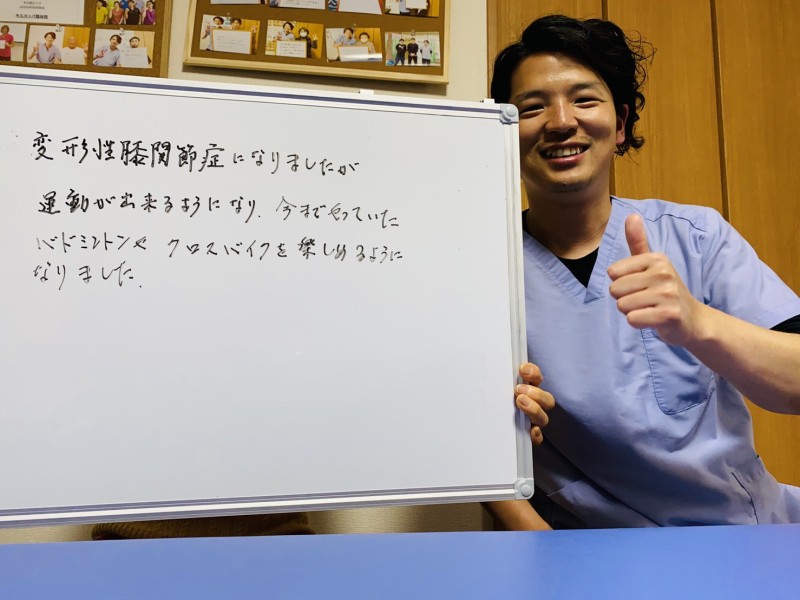 変形性膝関節症になりましたが
運動が出来るようになり、今までやっていた
バドミントンや クロスバイクを楽しめるように
なりました.